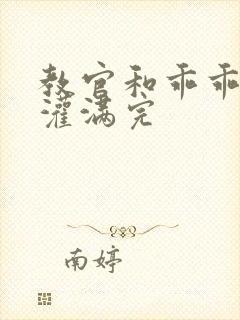 教官和乖乖
灌满完
南婷